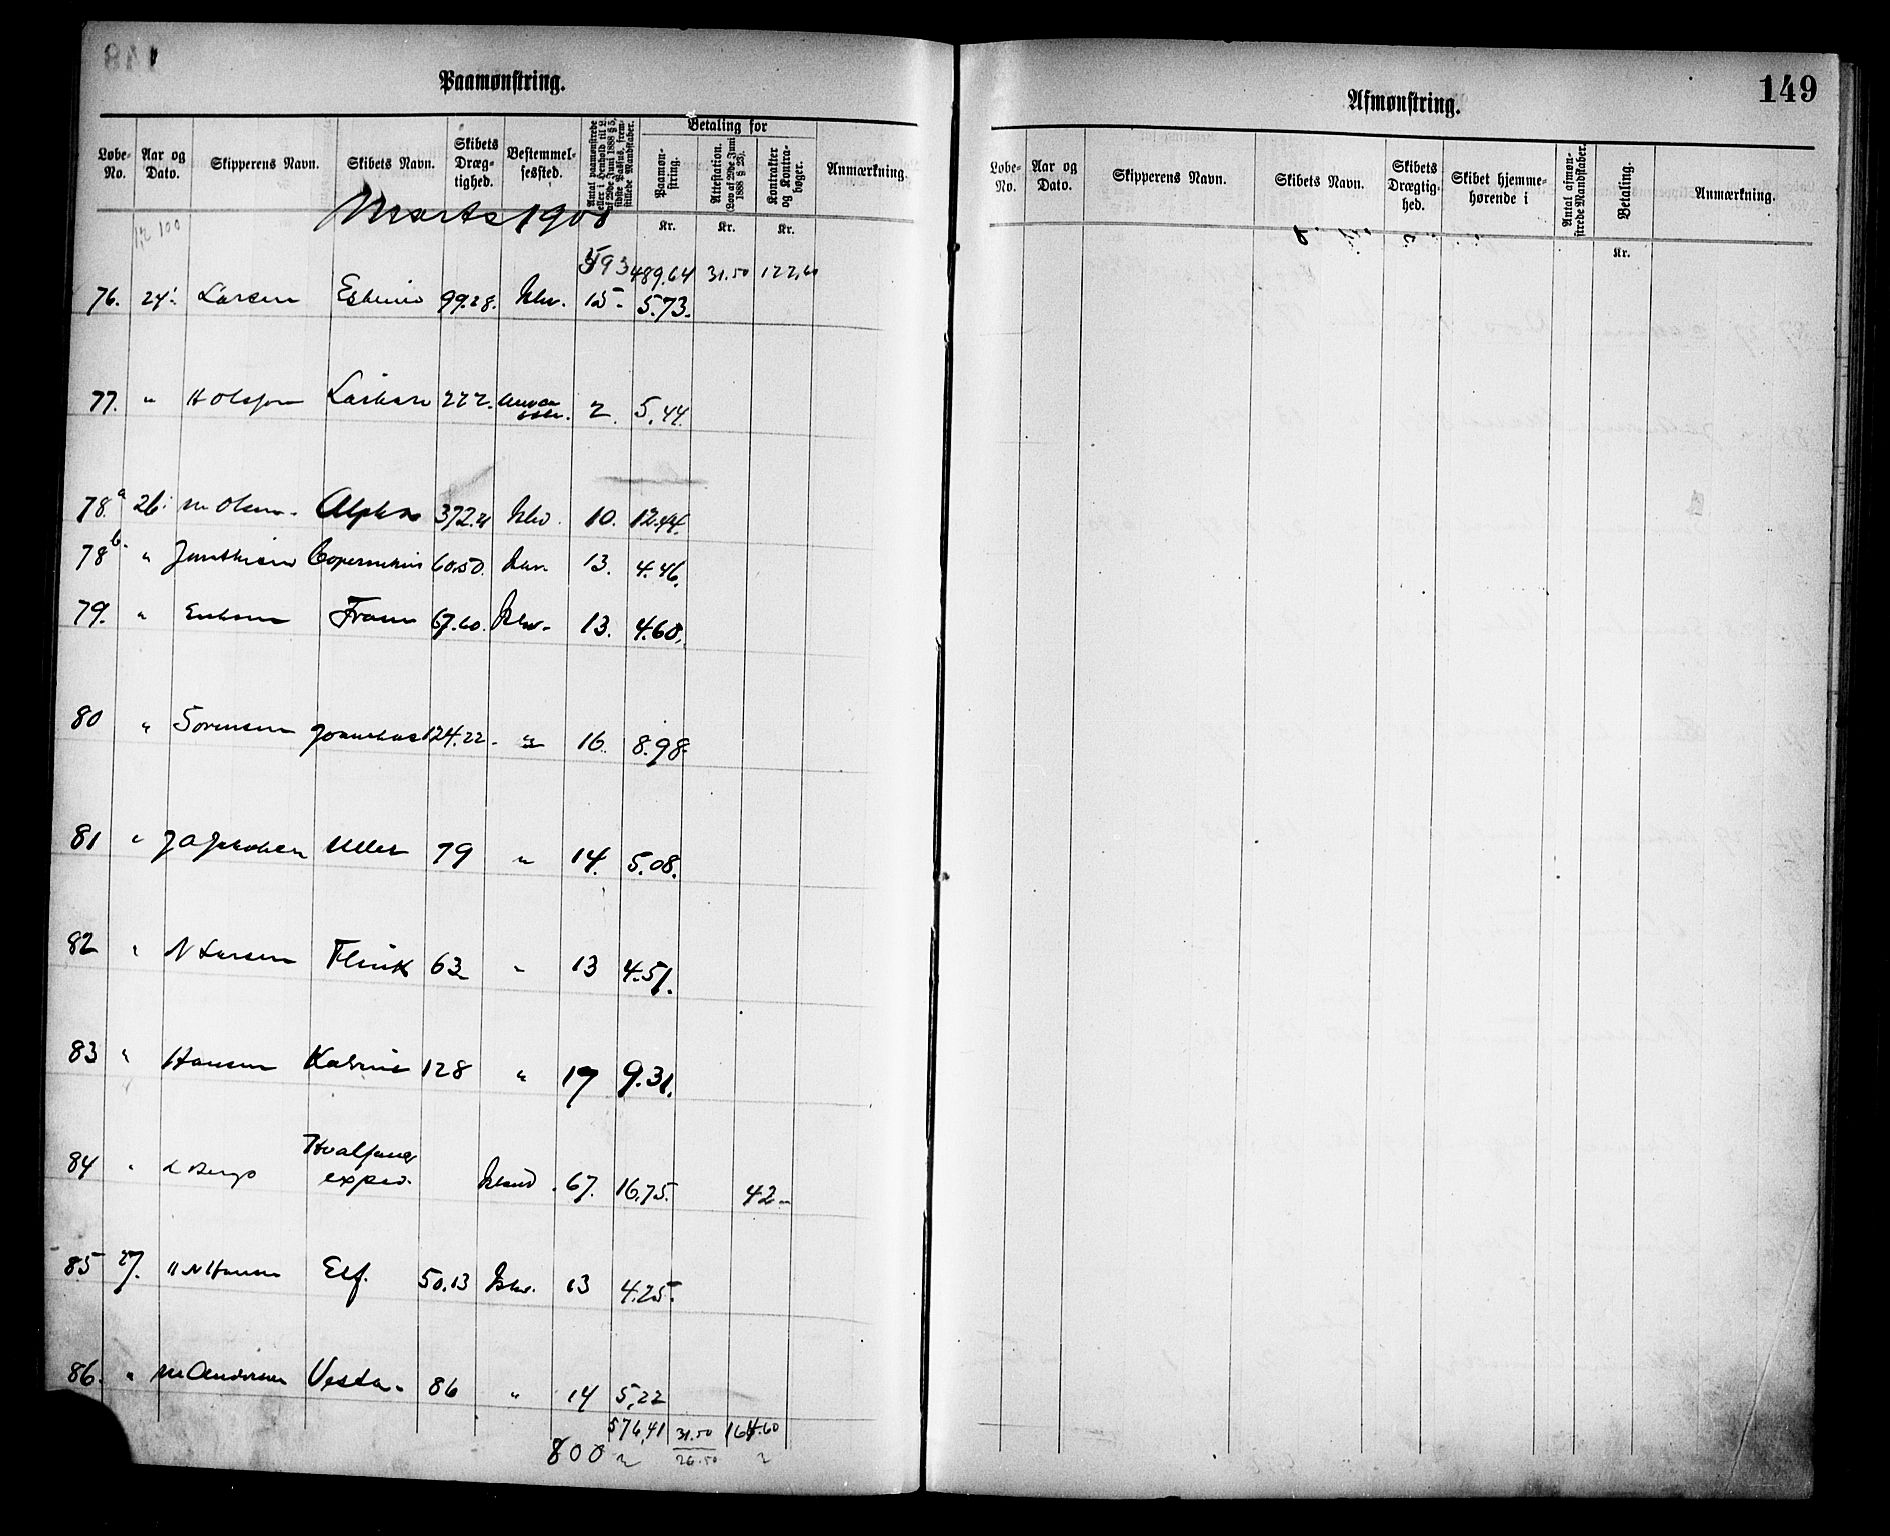 Paamønstring.
Løbe-No. Aar og Dato. Skipperens Navn. Skibets Navn. Skibets Dræg-tighed. Bestemmel-sessted. Antal paamønstrede eller i Henhold til L. af 29de Juni 1888 § 5, sidste Passus, frem-stillede Mandskaber. Betaling for Paamøn-string. Attestation. (Lov af 29de Juni 1888 § 23). Kontrakter og Kontra-bøger. Anmærkning.
Kr. Kr. Kr.
Marts 1900
593 489.64 31.50 122,60
76. 24. Larsen 99.28. 15 5.73.
77. " 222. 2. 5,44.
78.a 26. M Olsen Alpha 372.21 10. 12.44.
78 b. " Copernikus 60.50. 13. 4.46.
79. " Fram 67.60. 13. 4.60.
80 " Sørensen 124.22 " 16. 8.98
81 " J A Jakobsen 79 " 14. 5.08.
82 " N Larsen Flink 63 " 13 4.51.
83 " Hansen Katrine 128 " 17 9.31.
84 " L Berg Hvalfanger
exped. Island 67. 16,75. 42
85 27. H N Hansen Elf. 50.13 13 4.25.
86. " M Andersen Vesta 86 " 14 5,22
576,41 31.50 164.60
800 26.50
149
Afmønstring.
Løbe-No. Aar og Dato. Skipperens Navn. Skibets Navn. Skibets Drægtig-hed. Skibet hjemme-hørende i Antal afmøn-strede Mandskaber. Betaling. Anmærkning.
Kr.